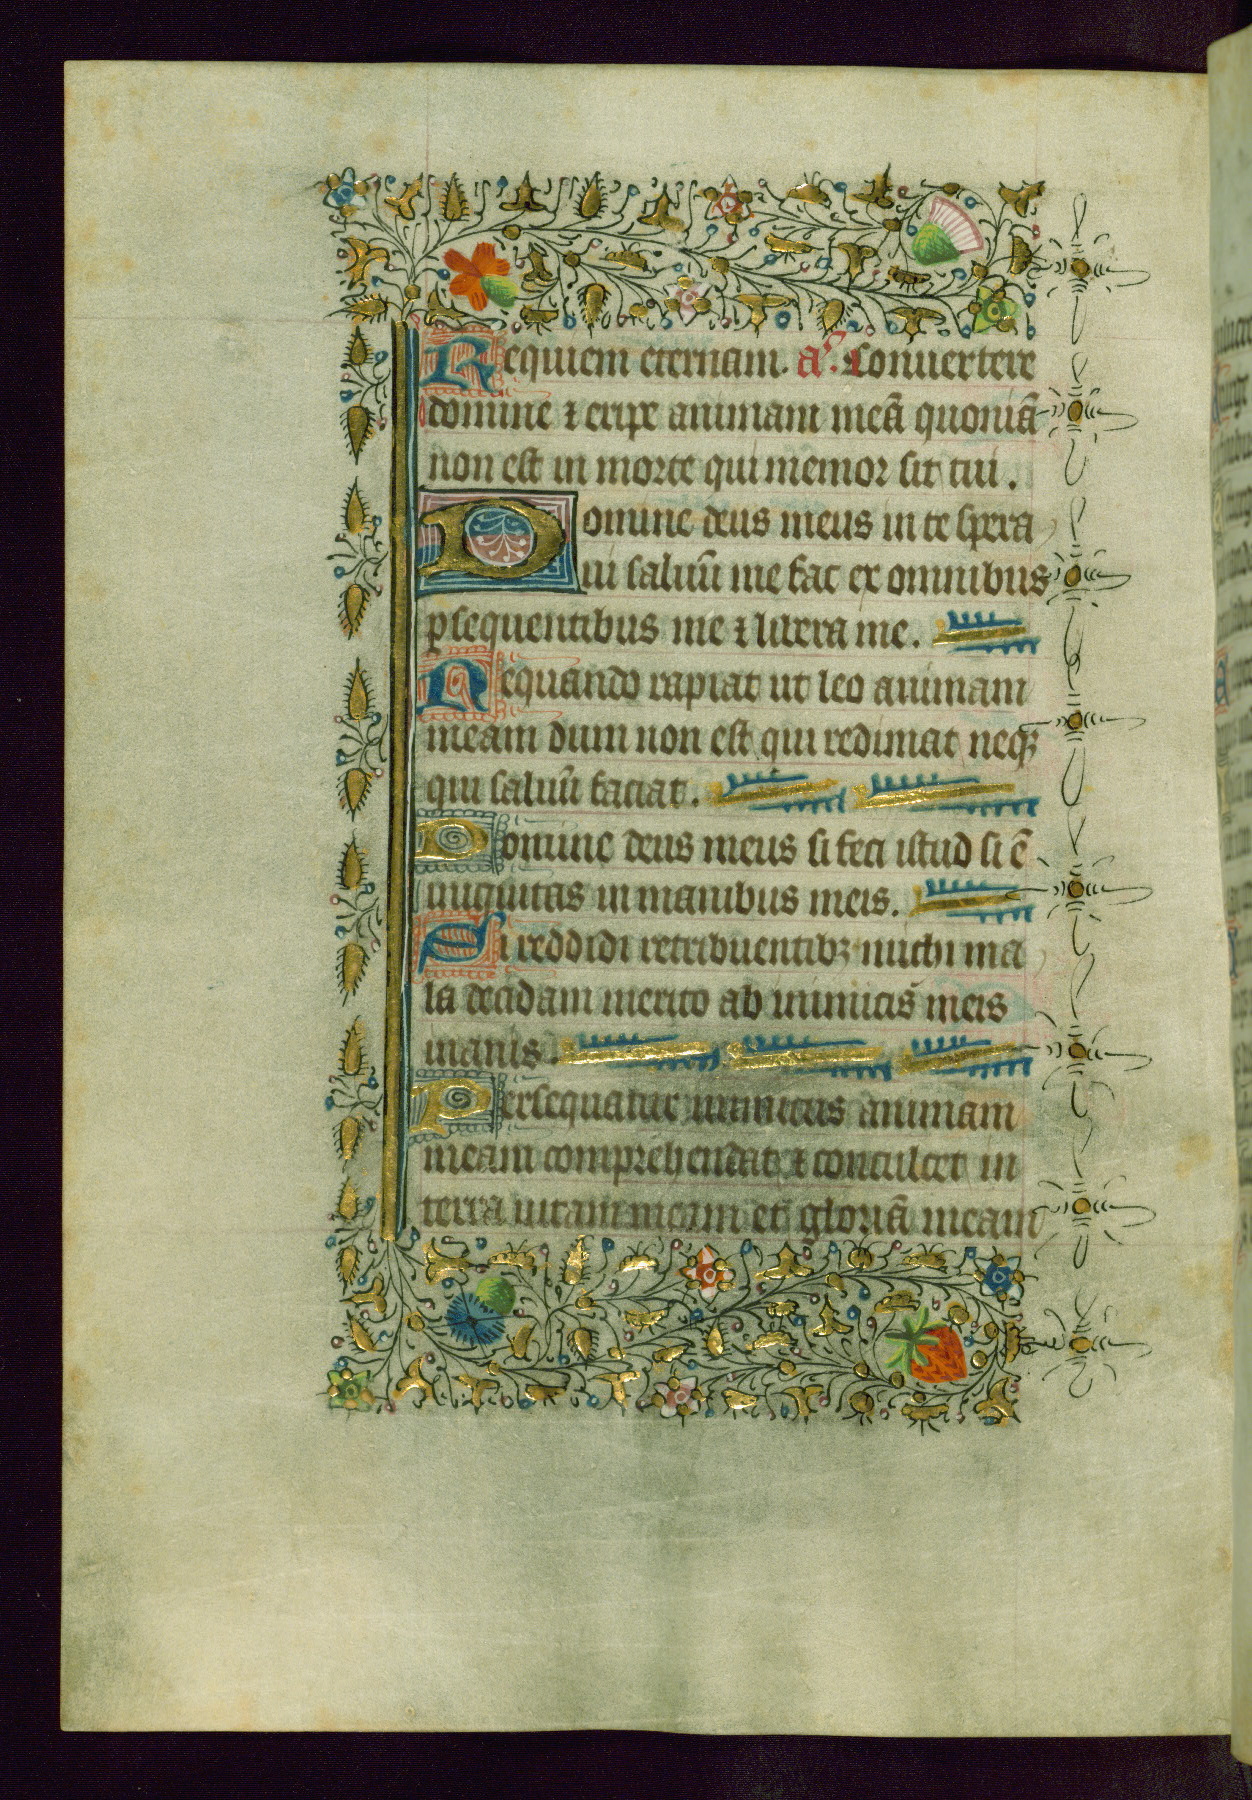 Requiem eternam. aͣ. Conuertere
domine ⁊ eripe animam meā quoniā
non est in morte qui memor sit tui.
Domine deus meus in te spera
ui saluū me fac ex omnibus
psequentibus me ⁊ libera me.
Nequando rapiat ut leo animam
meam dum non est qui redimat neqꝫ
qui saluū faciat.
Domine deus meus si feci istud si ē
iniquitas in manibus meis.
Si reddidi retribuentibꝫ michi ma
la decidam merito ab inimicis meis
inanis.
Persequatur inimicus animam
meam comprehendat ⁊ conculcet in
terra uitam meam et gloriā meam